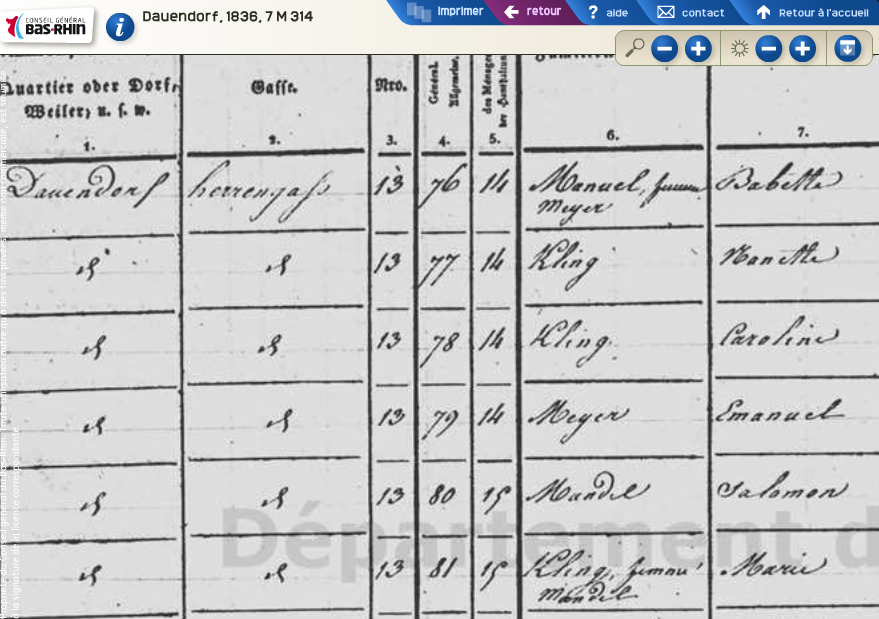 CONSEIL GÉNÉRAL
BAS-RHIN
Dauendorf, 1836, 7 M 314
imprimer
retour
aide
contact
Retour à l'accueil
Quartier oder Dorf,
Weiler, u. s. w.
Gasse.
Nro.
Général.
Allgemeine.
des Ménages
der Haushaltun
1.
2.
3.
4.
5.
6.
7.
Dauendorf herrengass 13 76 14 Manuel, femme Babette
Meyer
d d 13 77 14 Kling Nanette
d d 13 78 14 Kling Caroline
d d 13 79 14 Meyer Emanuel
d d 13 80 15 Mandel Salomon
d d 13 81 15 Kling, femme Marie
Mandel
Département d